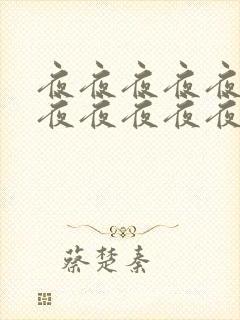 夜夜夜夜夜
夜夜夜夜夜
蔡楚秦